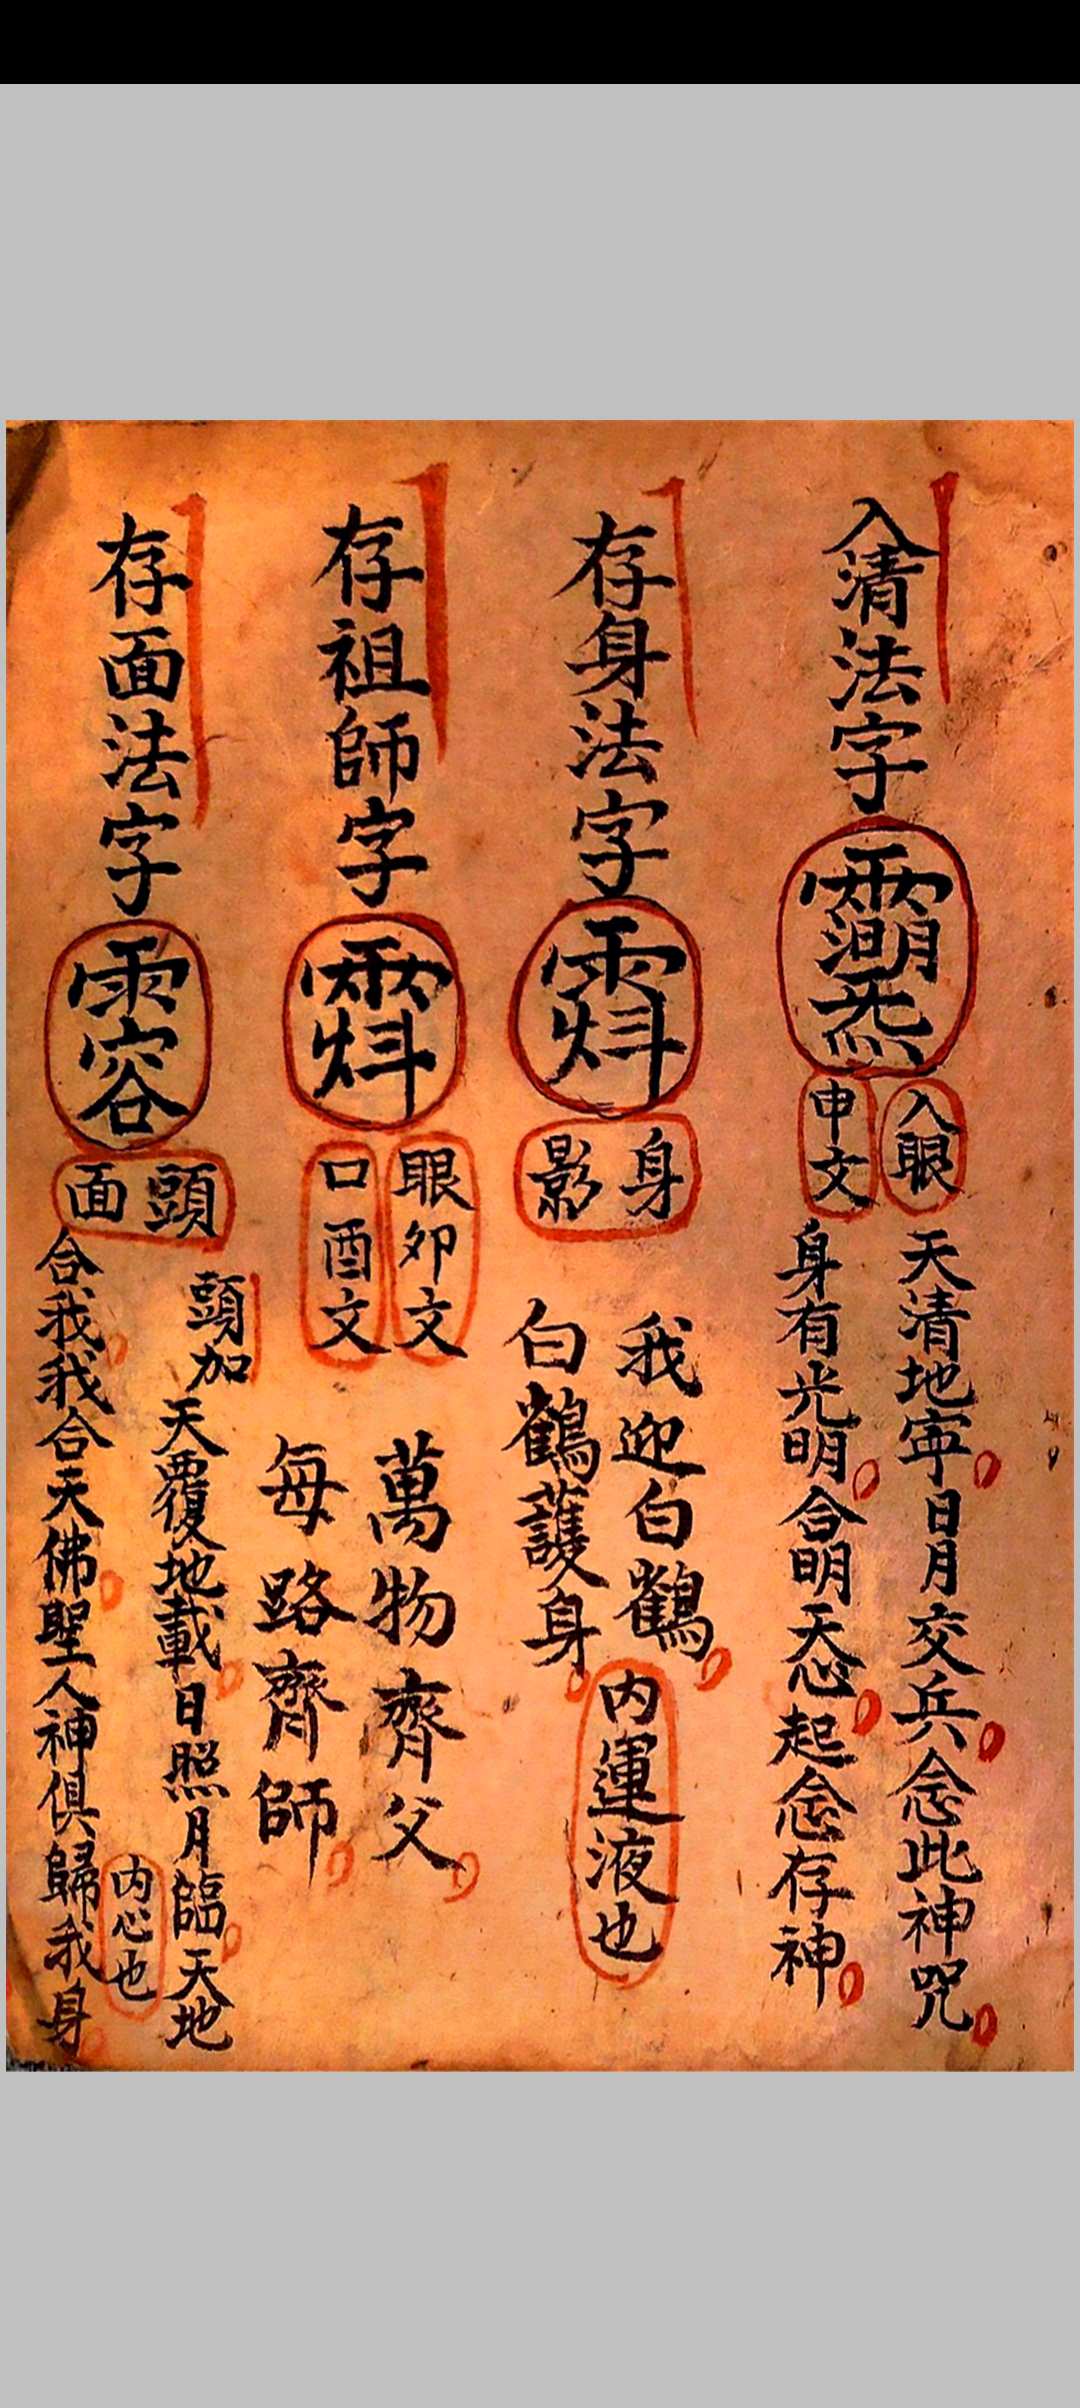 入清法字
入眼
申文
天清地寧日月交兵念此神咒
身有光明合明天心起念存神
存身法字
身
影
我迎白鶴
白鶴護身
內運液也
存祖師字
眼卯文
口酉文
萬物齊父
每路齊師
存面法字
頭
面
頭加
天覆地載日照月臨天地
合我我合天佛聖人神俱歸我身
內心也